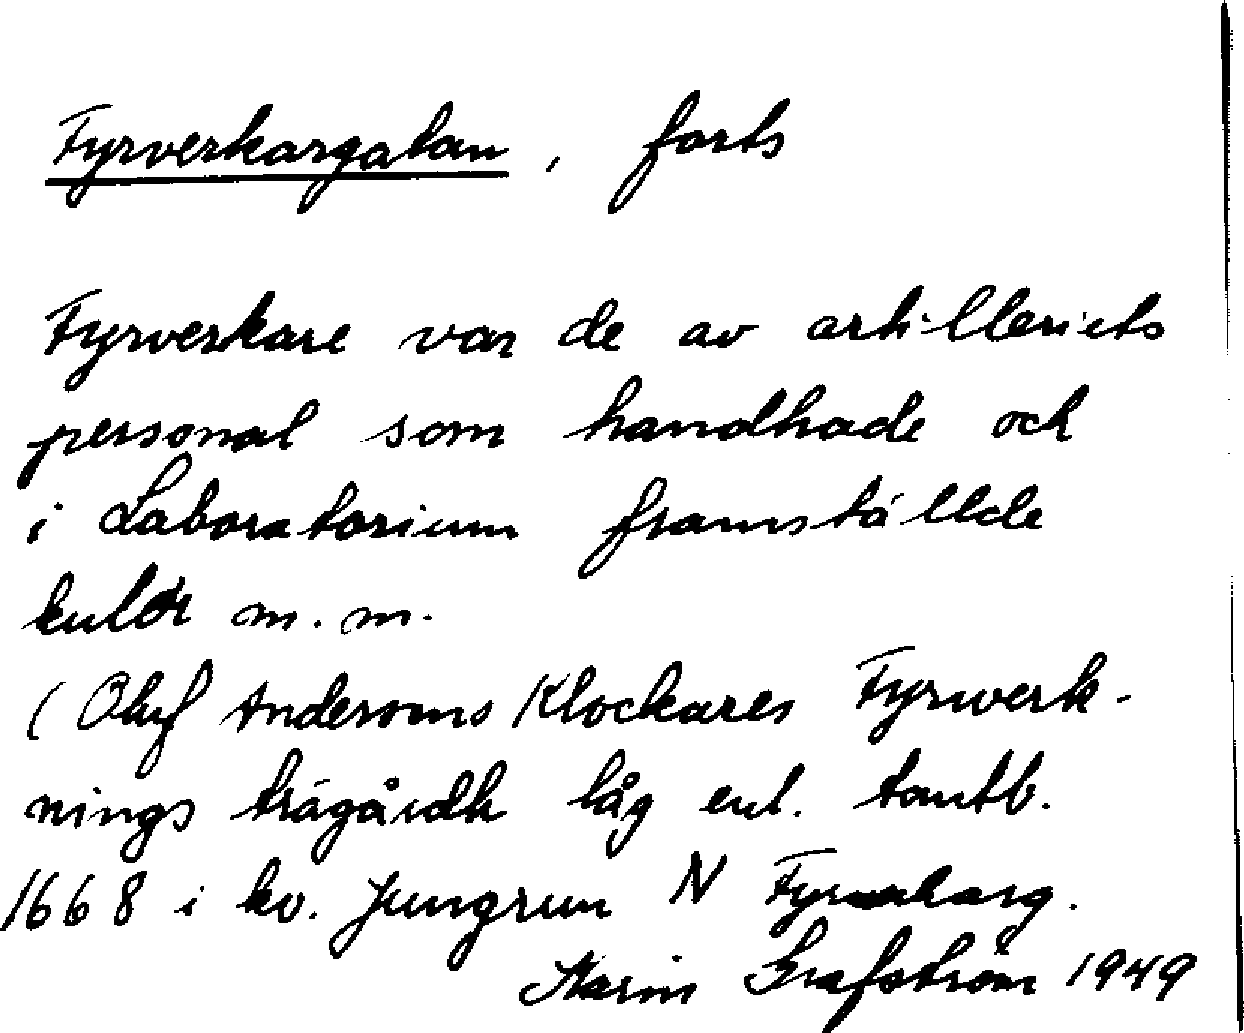 Fyrverkargatan, forts
Fyrverkare var de av artilleriets
personal som handhade och
i Laboratorium framställde
kulor m.m.
(Oluf Andersons Klockares Fyrwerk-
nings trägårdh låg enl. tomtb.
1668 i kv. Jungrun N
Karin Grafström 1949